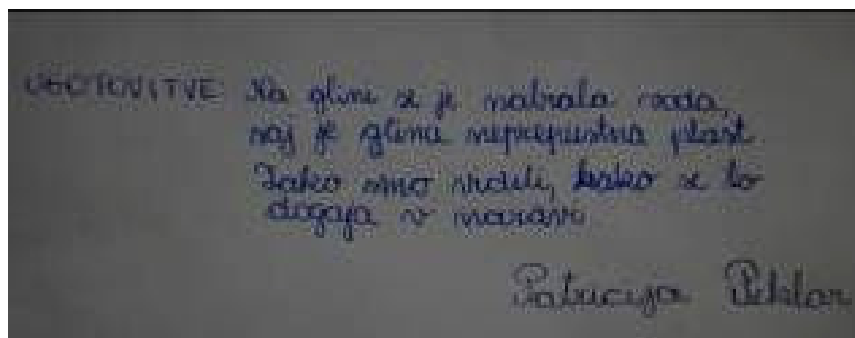 UGOTOVITVE: Na glini se je nabrala voda,
saj je glina neprepustna plast.
Tako smo videli, kako se to
dogaja v naravi.
Patricija